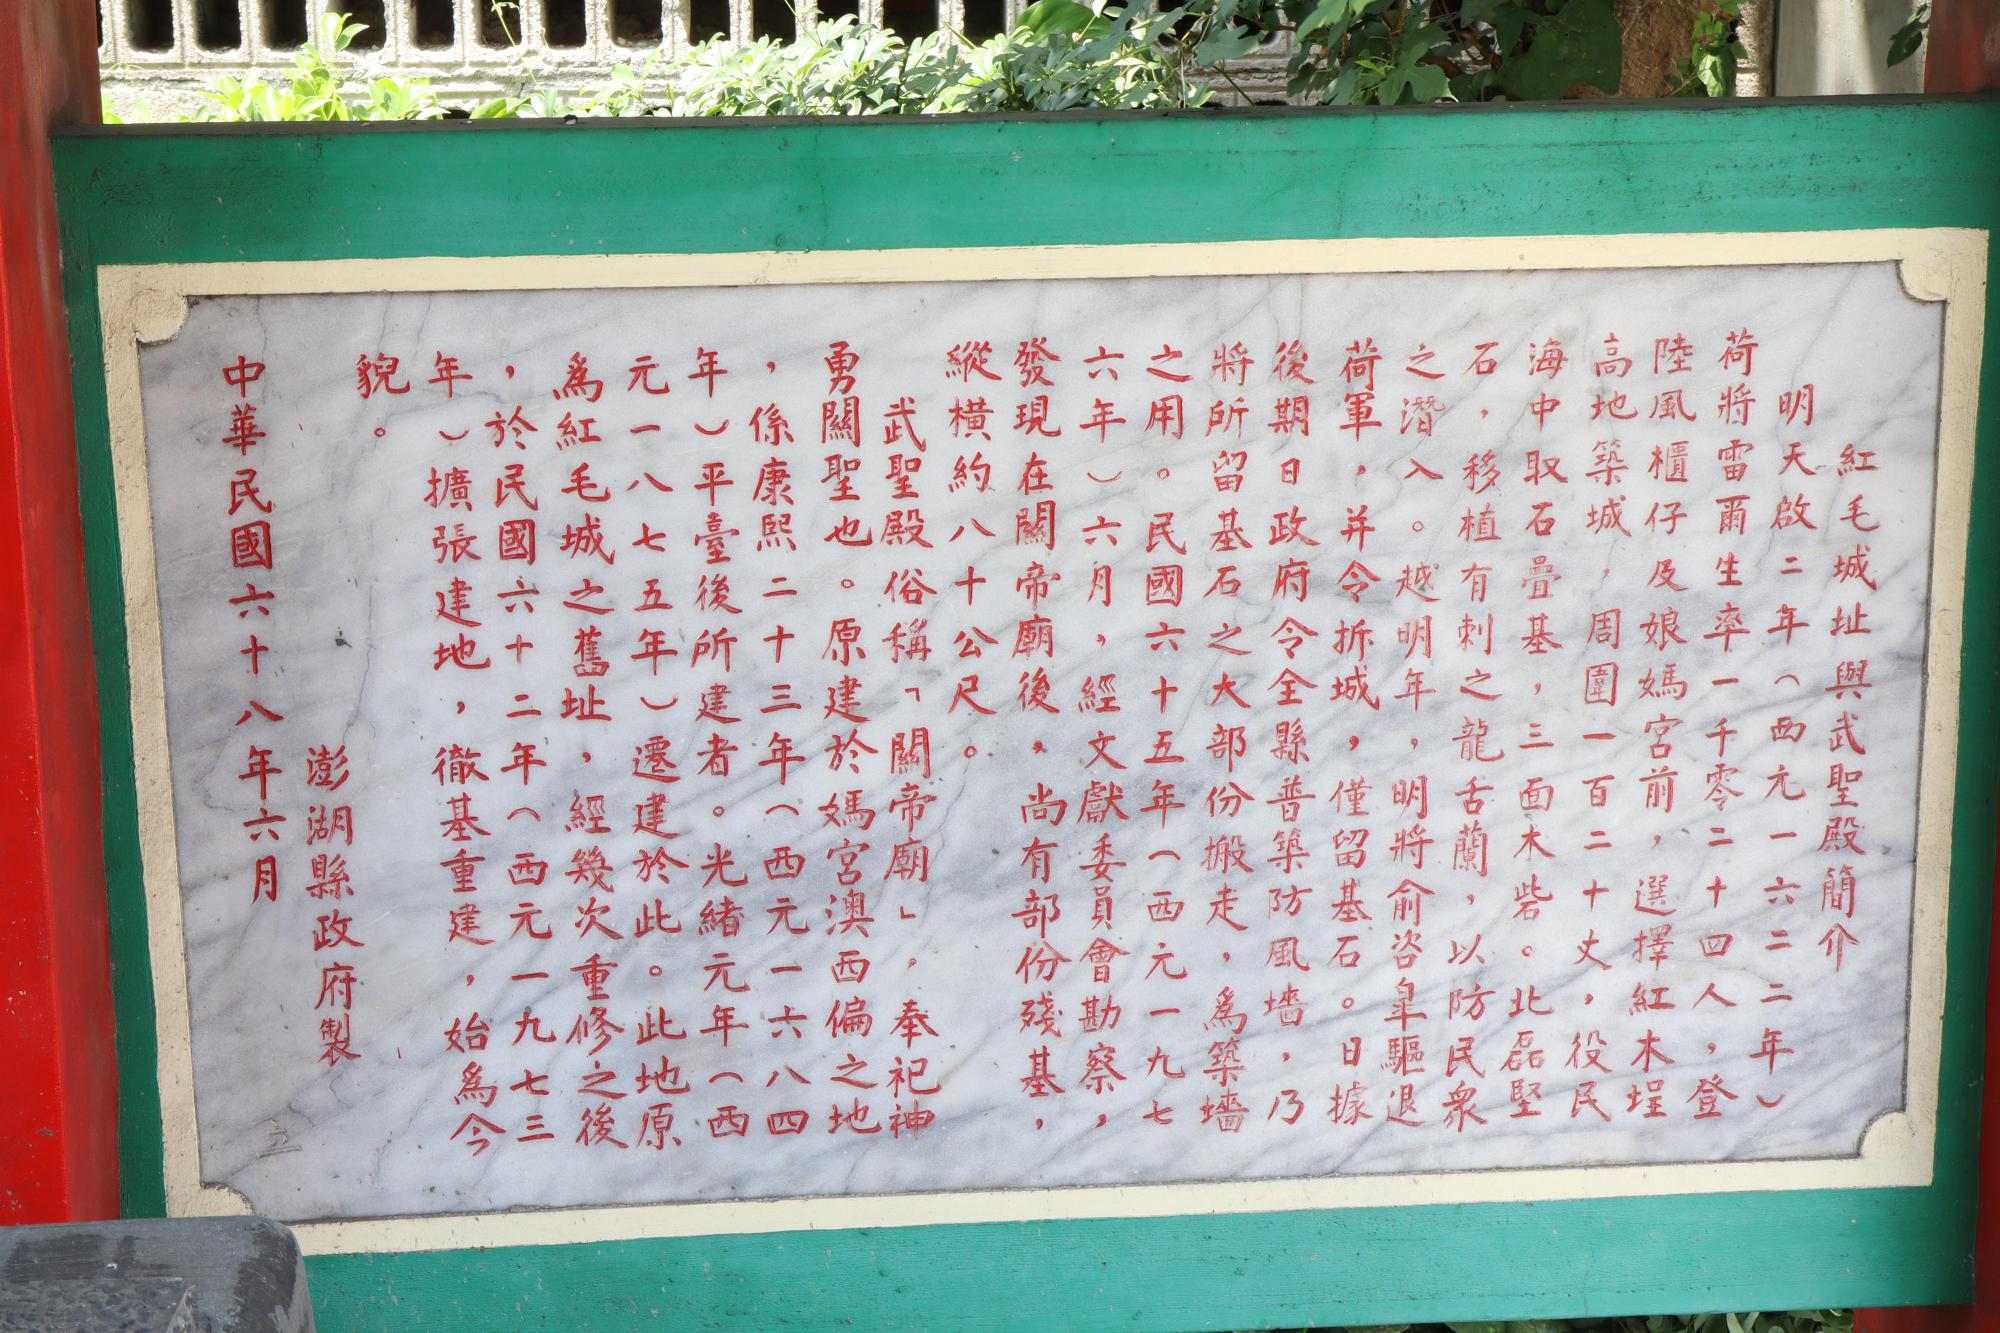 紅毛城址與武聖殿簡介
明天啟二年（西元一六二二年）
荷將雷爾生率一千零二十四人，登
陸風櫃仔及娘媽宮前，選擇紅木埕
高地築城，周圍一百二十丈，役民
海中取石疊基，三面木砦。北磊堅
石，移植有刺之龍舌蘭，以防民眾
之潛入。越明年，明將俞咨臯驅退
荷軍，并令拆城，僅留基石。日據
後期日政府令全縣普築防風墻，乃
將所留基石之大部份搬走，為築墻
之用。民國六十五年（西元一九七
六年）六月，經文獻委員會勘察，
發現在關帝廟後，尚有部份殘基，
縱橫約八十公尺。
武聖殿俗稱「關帝廟」。奉祀神
勇關聖也。原建於媽宮澳西偏之地
，係康熙二十三年（西元一六八四
年）平臺後所建者。光緒元年（西
元一八七五年）遷建於此。此地原
為紅毛城之舊址，經幾次重修之後
，於民國六十二年（西元一九七三
年）擴張建地，徹基重建，始為今
貌。
澎湖縣政府製
中華民國六十八年六月